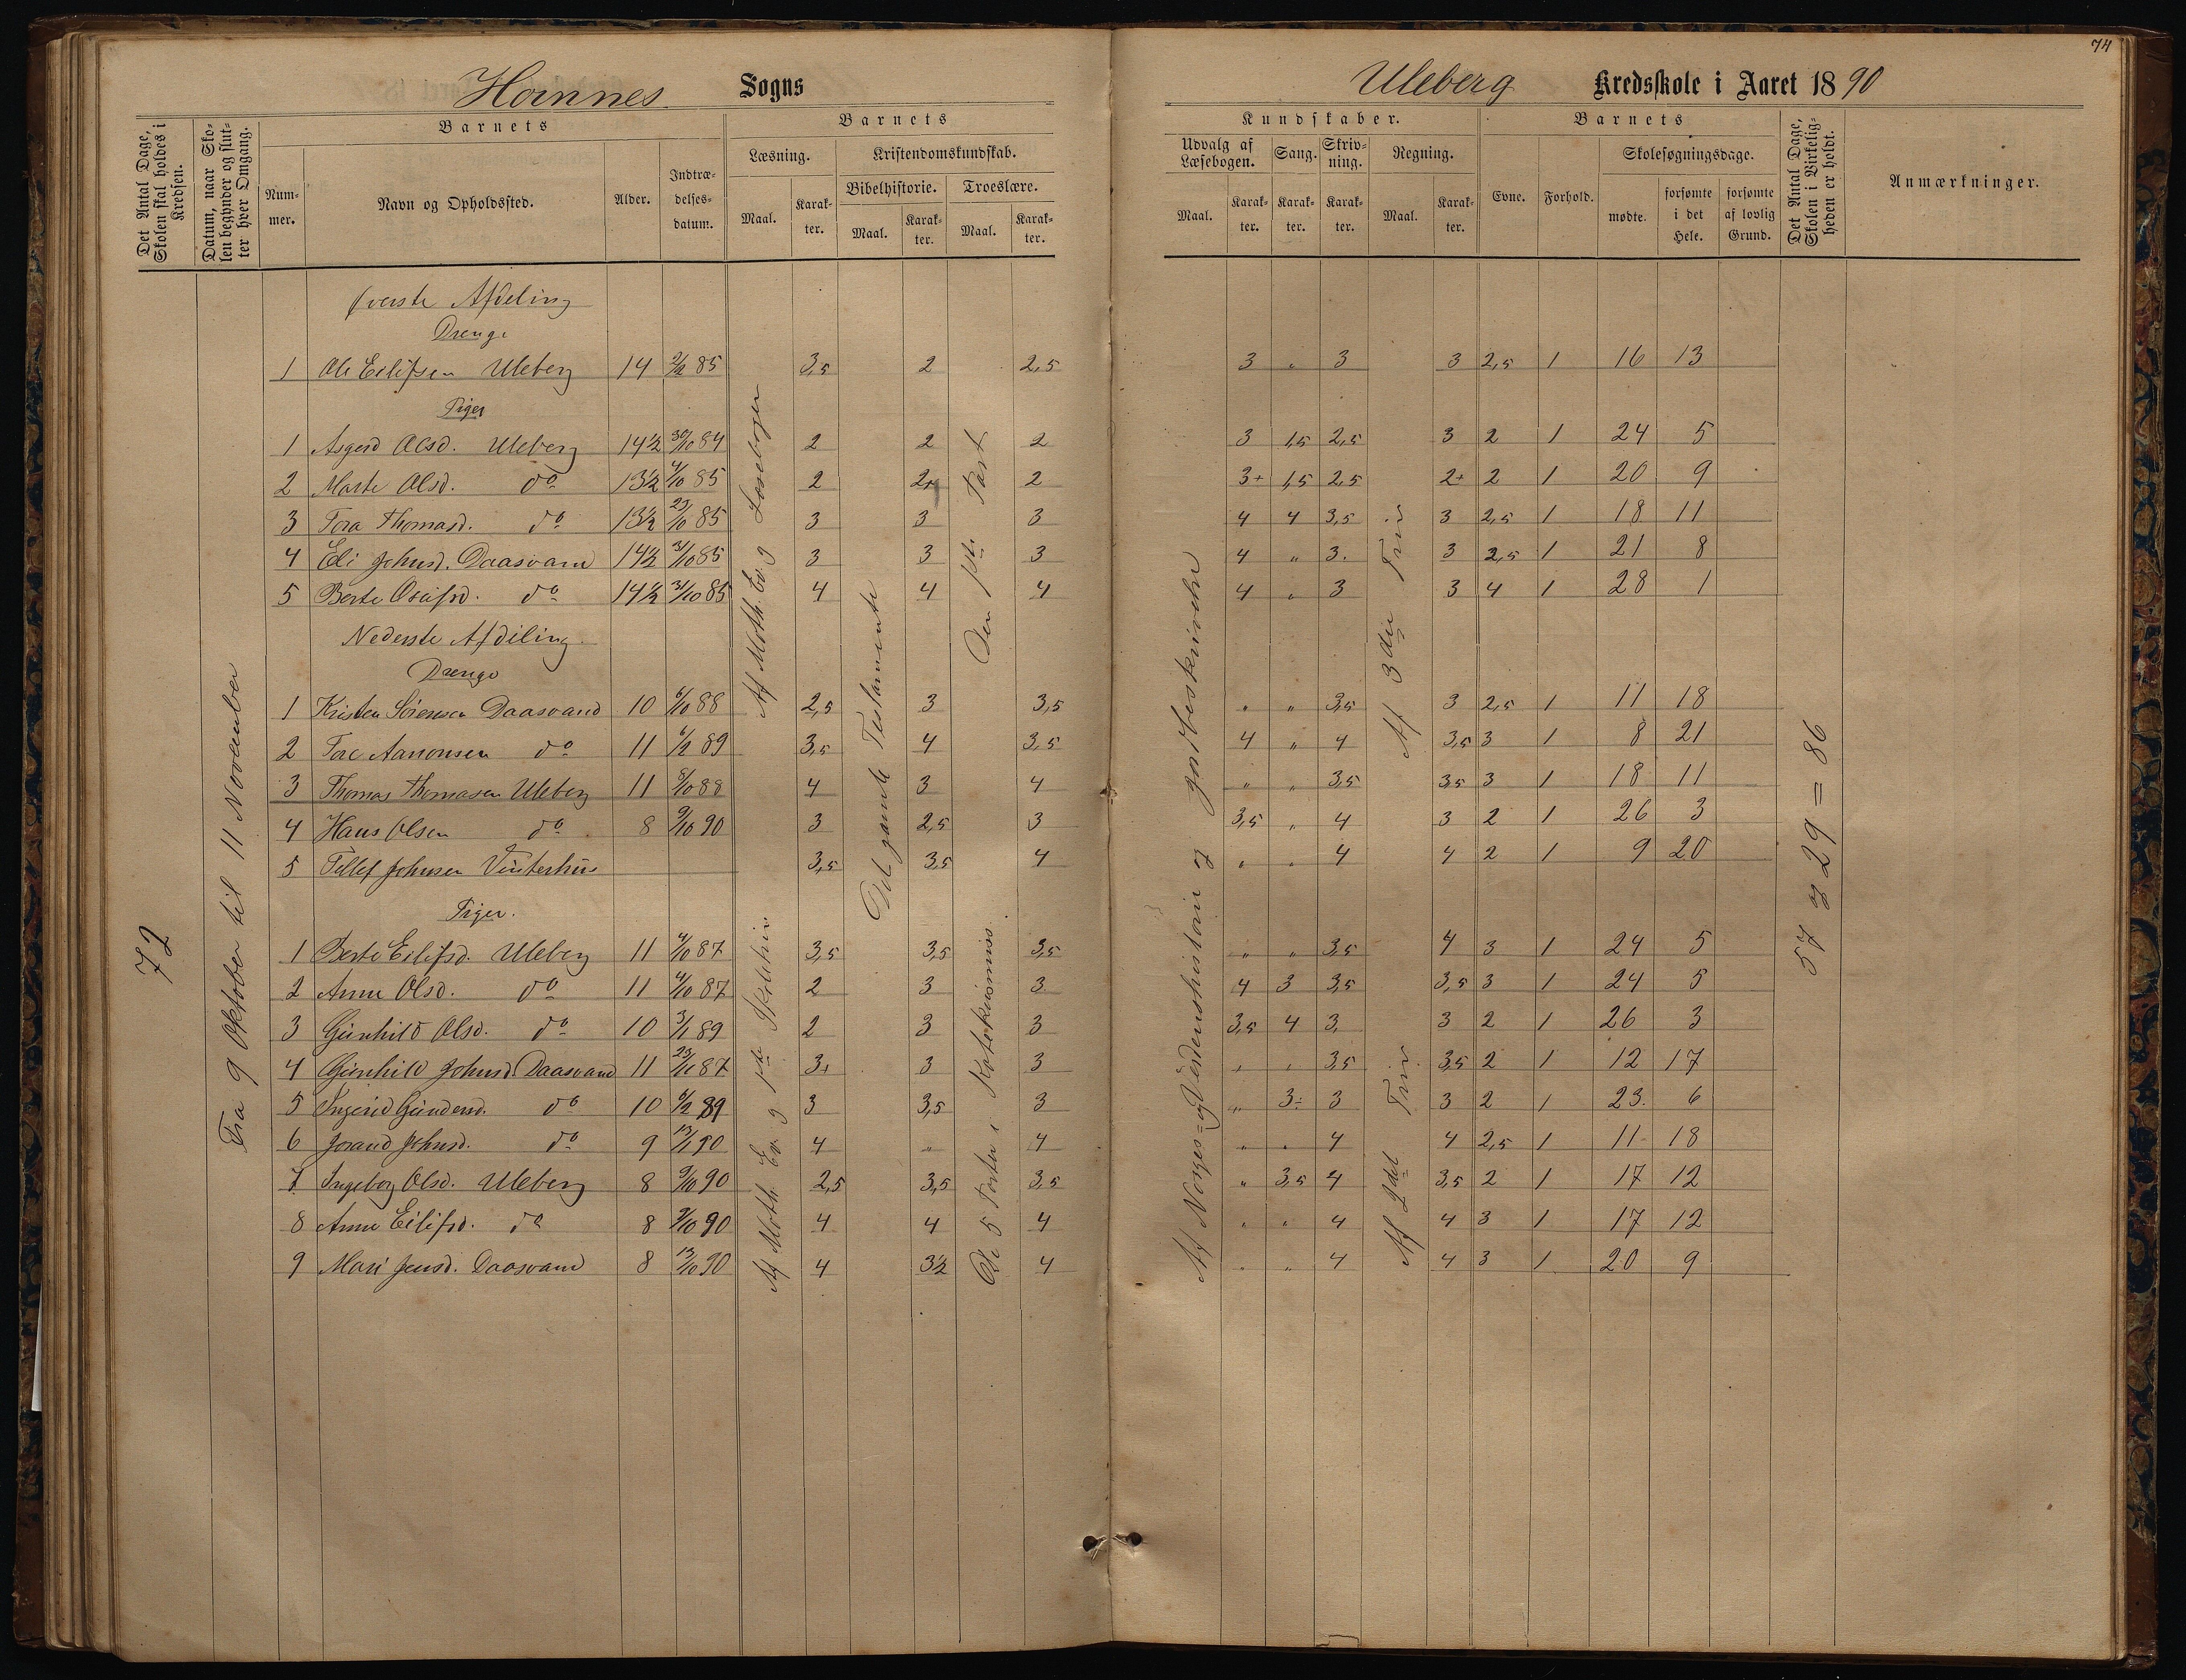 74
Hornnes Sogns
Uleberg Kredsskole i Aaret 1890
Det Antal Dage, Skolen skal holdes i Kredsen.
Datum, naar Skolen begynder og slutter hver Omgang.
Barnets
Nummer.
Navn og Opholdssted.
Alder.
Indtrædelsesdatum.
Barnets
Læsning.
Maal.
Karakter.
Kristendomskundskab.
Bibelhistorie.
Maal.
Karakter.
Troeslære.
Maal.
Karakter.
Kundskaber.
Udvalg af Læsebogen.
Maal.
Karakter.
Sang.
Karakter.
Skrivning.
Karakter.
Regning.
Maal.
Karakter.
Barnets
Evne.
Forhold.
Skolesøgningsdage.
mødte.
forsømte i det Hele.
forsømte af lovlig Grund.
Det Antal Dage, Skolen i Virkeligheden er holdt.
Anmærkninger.
72
Fra 9 Oktober til 11 November
Øverste Afdeling
Drenge
1 Ole Eilifsen Uleberg 14 2/12 85 3,5 2 2,5 3 " 3 3 2,5 1 16 13
Piger
1 Asgerd Olsd. Uleberg 14½ 30/10 84 2 2 2 3 1,5 2,5 3 2 1 24 5
2 Marte Olsd. do 13½ 4/10 85 2 2+ 2 3+ 1,5 2,5 2+ 2 1 20 9
3 Tora Thomasd. do 13½ 23/10 85 3 3 3 4 4 3,5 3 2,5 1 18 11
4 Eli Johnsd. Daasvand 14½ 31/10 85 3 3 3 4 " 3. 3 2,5 1 21 8
5 Berte Osufsd. do 14½ 31/10 85 4 4 4 4 " 3 3 4 1 28 1
Nederste Afdeling.
Drenge
1 Kristen Sørensen Daasvand 10 6/10 88 2,5 3 3,5 " " 3,5 3 2,5 1 11 18
2 Tore Aanonsen do 11 6/2 89 3,5 4 3,5 4 " 4 3,5 3 1 8 21
3 Thomas Thomasen Uleberg 11 8/10 88 4 3 4 " " 3,5 3,5 3 1 18 11
4 Hans Olsen do 8 9/10 90 3 2,5 3 3,5 " 4 3 2 1 26 3
5 Tellef Johnsen Vinterhus 3,5 3,5 4 " " 4 4 2 1 9 20
Piger.
1 Berte Eilifsd. Uleberg 11 4/10 87 3,5 3,5 3,5 " " 3,5 4 3 1 24 5
2 Anne Olsd. do 11 4/10 87 2 3 3 4 3 3,5 3,5 3 1 24 5
3 Gunhild Olsd. do 10 3/1 89 2 3 3 3,5 4 3. 3 2 1 26 3
4 Gunhild Johnsd. Daasvand 11 87 3+ 3 3 " " 3,5 3,5 2 1 12 17
5 Ingerid Gundersd. do 10 6/2 89 3 3,5 3 " 3÷ 3 3 2 1 23. 6
6 Jorand Johnsd. do 9 13/1 90 4 " 4 " " 4 4 2,5 1 11 18
7 Ingeborg Olsd. Uleberg 8 9/10 90 2,5 3,5 3,5 " 3,5 4 3,5 2 1 17 12
8 Anne Eilifsd. do 8 9/10 90 4 4 4 " " 4 4 3 1 17 12
9 Mari Jensd. Daasvand 8 13/10 90 4 3½ 4 " " 4 4 3 1 20 9
Af Moth. Ev. og Læsebogen
Af Moth. Ev. og 1ste
Det gamle Testamente
Den 1ste Part
De 5 Parter i Katekismus
Af Norges- og Verdenshistorie og jordbeskrivelse
Af 3die Trin
Af 2det Trin
57 og 29 = 86